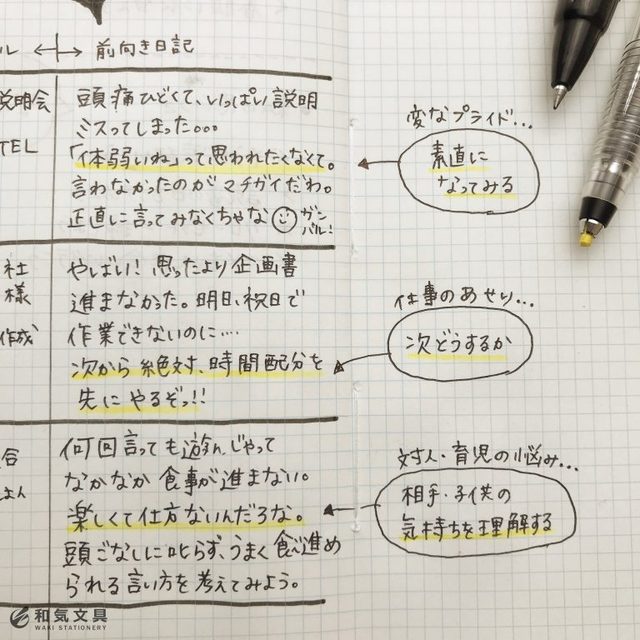 ル ←→ 前向き日記
説明会
TEL
頭痛ひどくて、いっぱい説明
ミスってしまった。。。
「体弱いね」って思われたくなくて。
言わなかったのがマチガイだわ。
正直に言ってみなくちゃな ガンバル!
変なプライド…
素直に
なってみる
社
様
作成
やばい! 思ったより企画書
進まなかった。明日、祝日で
作業できないのに….
次から絶対、時間配分を
先にやるぞっ!!
仕事のあせり…
次どうするか
何回言っても遊んじゃって
なかなか食事が進まない。
楽しくて仕方ないんだろな。
頭ごなしに叱らず、うまく食べ進め
られる言い方を考えてみよう。
対人・育児の悩み…
相手・子供の
気持ちを理解する
和気文具
WAKI STATIONERY